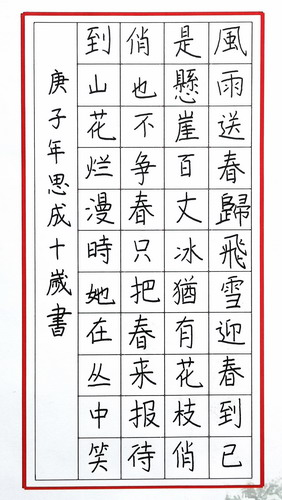 風雨送春歸飛雪迎春到已
是懸崖百丈冰猶有花枝俏
俏也不争春只把春来报待
到山花烂漫時她在丛中笑
庚子年思成十歲書